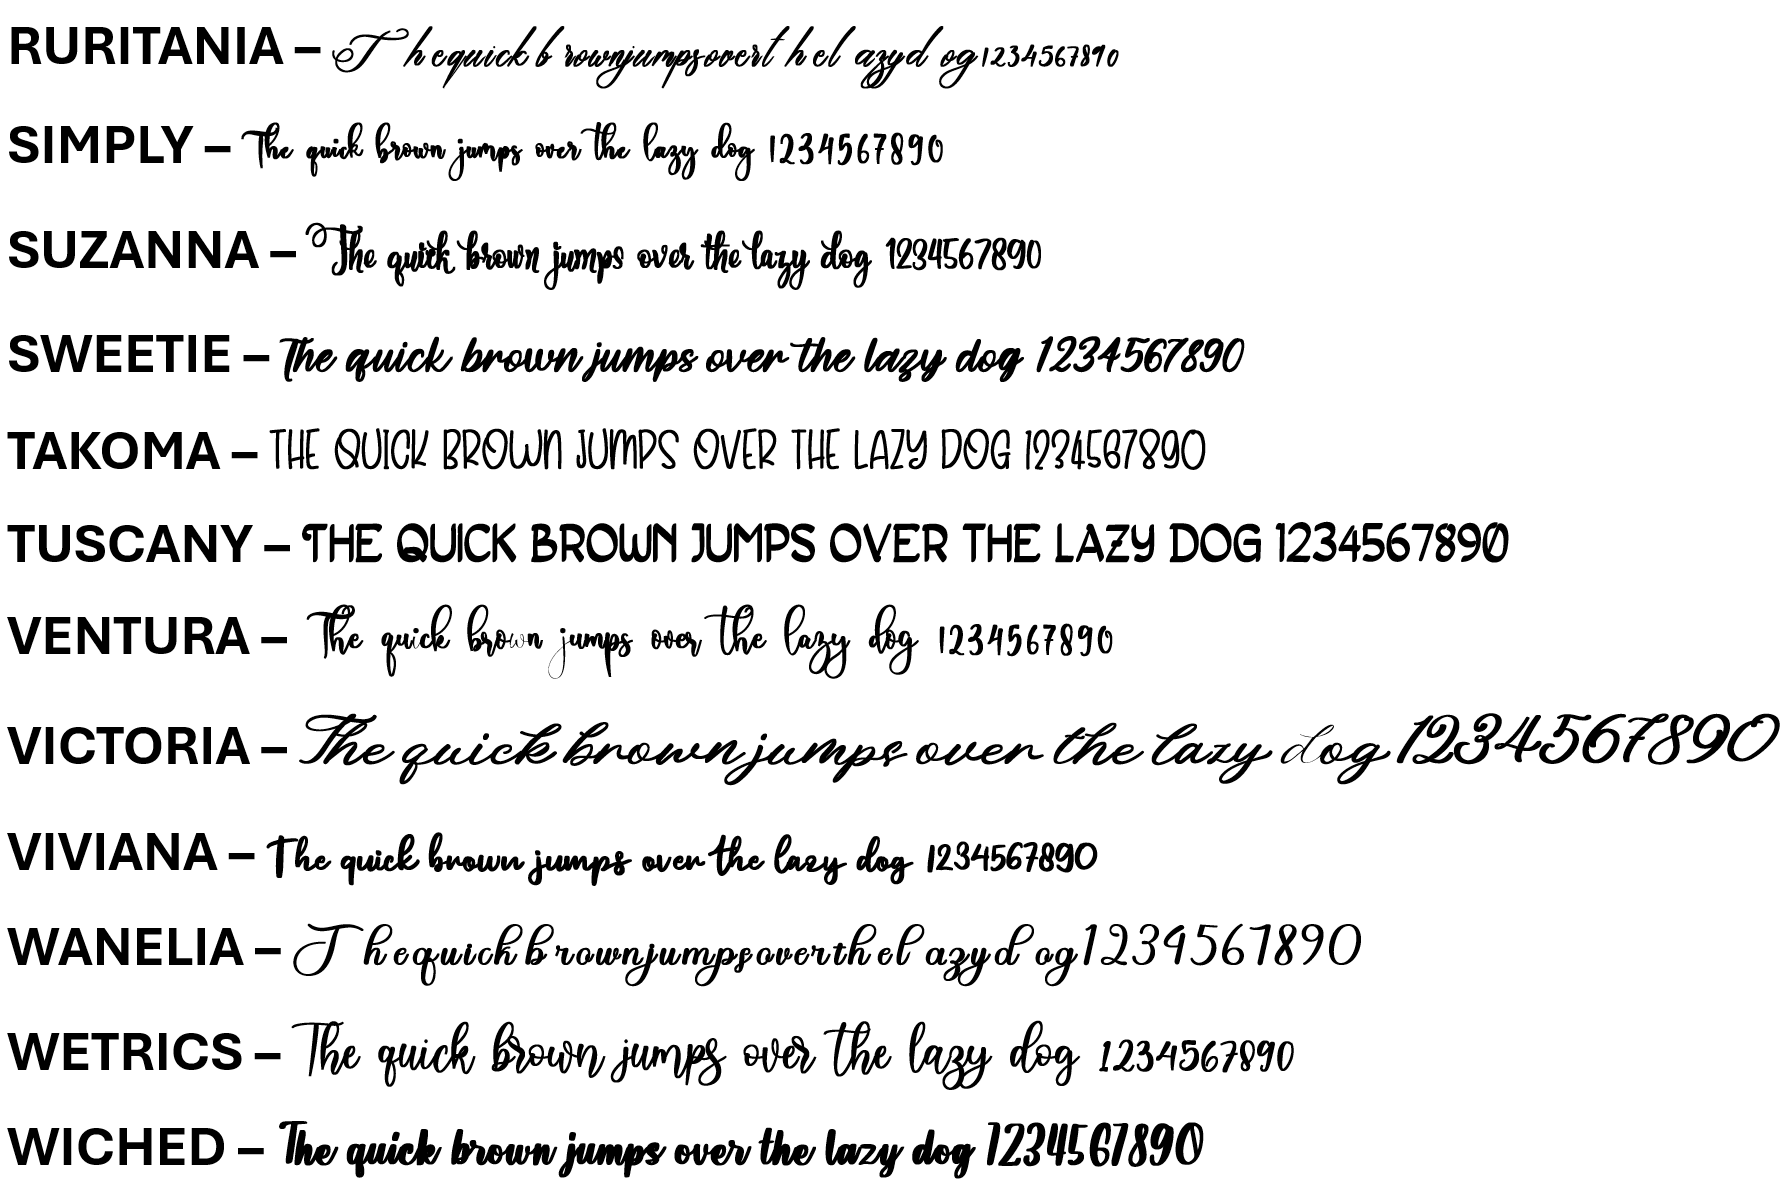 RURITANIA – T h equick b rownjumpsovert h el azyd og1234567890
SIMPLY – The quick brown jumps over the lazy dog 1234567890
SUZANNA – The quick brown jumps over the lazy dog 1234567890
SWEETIE – The quick brown jumps over the lazy dog 1234567890
TAKOMA – THE QUICK BROWN JUMPS OVER THE LAZY DOG 1234567890
TUSCANY – THE QUICK BROWN JUMPS OVER THE LAZY DOG 1234567890
VENTURA – The quick brown jumps over the lazy dog 1234567890
VICTORIA – The quick brown jumps over the lazy dog 1234567890
VIVIANA – The quick brown jumps over the lazy dog 1234567890
WANELIA – T h equick b rownjumpsoverth el azyd og1234567890
WETRICS – The quick brown jumps over the lazy dog 1234567890
WICHED – The quick brown jumps over the lazy dog 1234567890